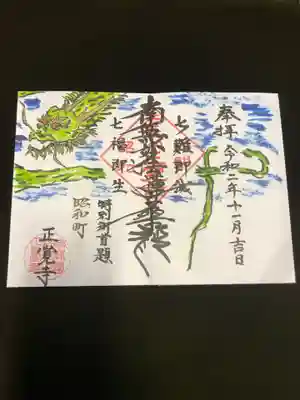 奉拝
令和二年十一月吉日
七難即滅
南無妙法蓮華経
七福即生
特別御首題
昭和町
正覚寺